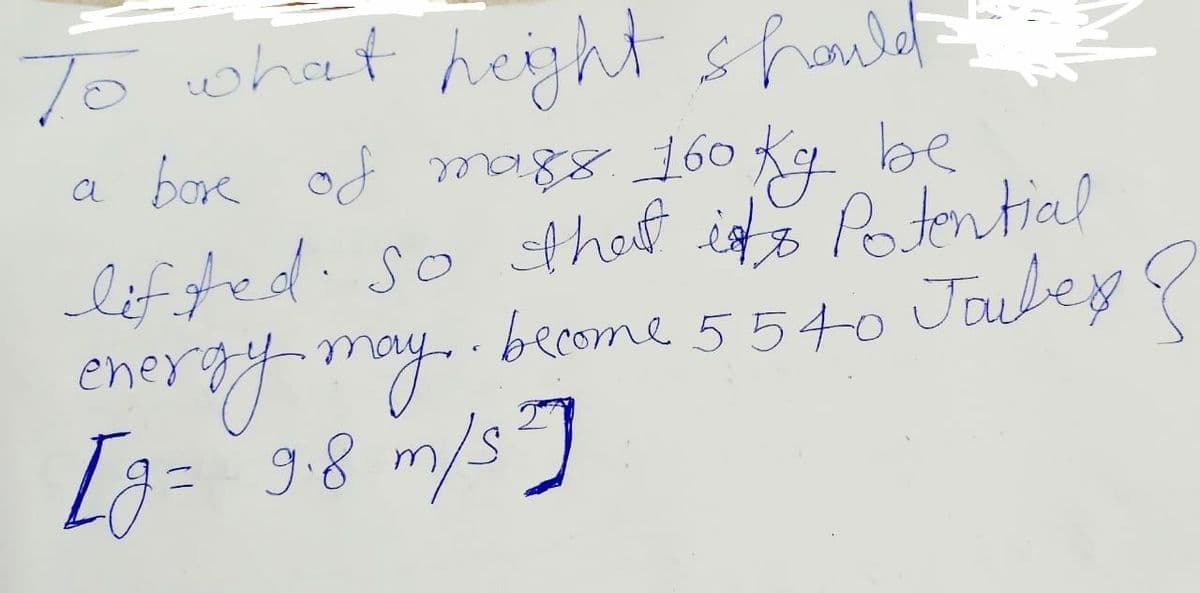 To what height should
a boxe of mass. 160 Kg be
lifted. so that its Potential
energy may. become 5540 Joules?
[g= 9.8 m/s²]